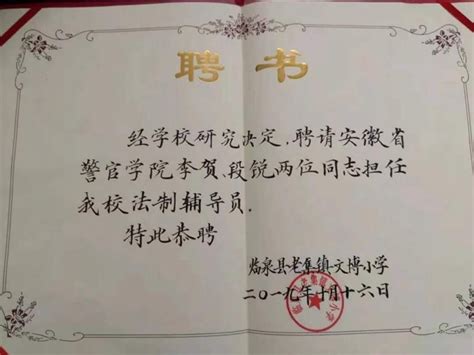 聘书
经学校研究决定,聘请安徽省
警官学院李贺、段锐两位同志担任
我校法制辅导员.
特此恭聘
临泉县老集镇文博小学
二〇一九年十月十六日